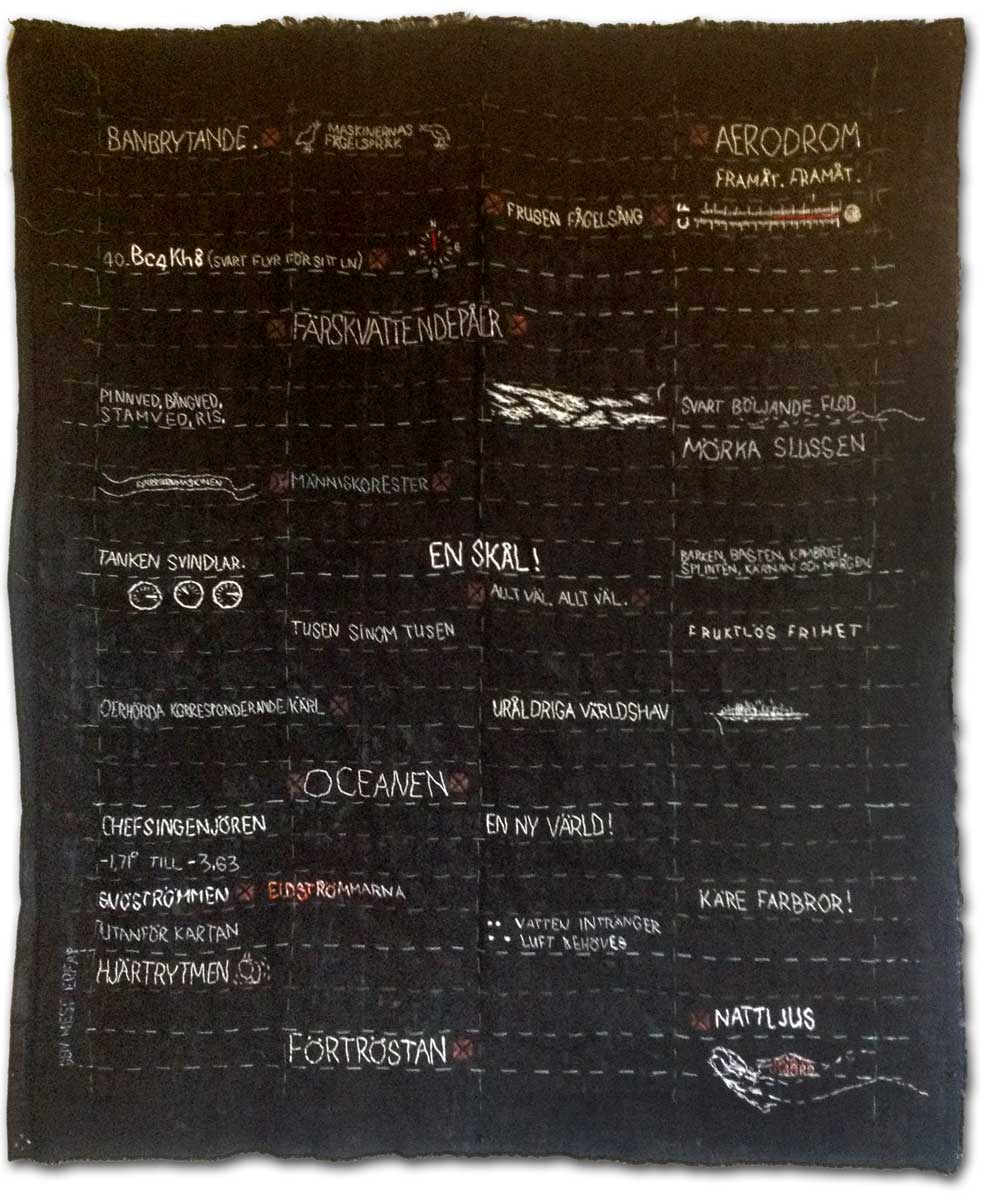 BANBRYTANDE.
MASKINERNAS
FÅGELSPRÅK
AERODROM
FRAMÅT. FRAMÅT.
FRUSEN FÅGELSÅNG
C F
40. Bc4Kh8 (SVART FLYR FÖR SITT LN)
N
W E
S
FÄRSKVATTENDEPÅER
PINNVED, BÅNGVED,
STAMVED, RIS.
SVART BÖLJANDE FLOD
MÖRKA SLUSSEN
MÄNNISKORESTER
TANKEN SVINDLAR.
EN SKÅL!
BARKEN, BASTEN, KAMBIET,
SPLINTEN, KÄRNAN OCH MÄRGEN
ALLT VÄL. ALLT VÄL.
TUSEN SINOM TUSEN
FRUKTLÖS FRIHET
OERHÖRDA KORRESPONDERANDE KÄRL
URÅLDRIGA VÄRLDSHAV
OCEANEN
CHEFSINGENJÖREN
EN NY VÄRLD!
-1,71° TILL -3,63
SYDSTRÖMMEN
ELDSTRÖMMARNA
KÄRE FARBROR!
UTANFÖR KARTAN
VATTEN INTRÄNGER
LUFT BEHÖVES
HJÄRTRYTMEN
NATTLJUS
FÖRTRÖSTAN